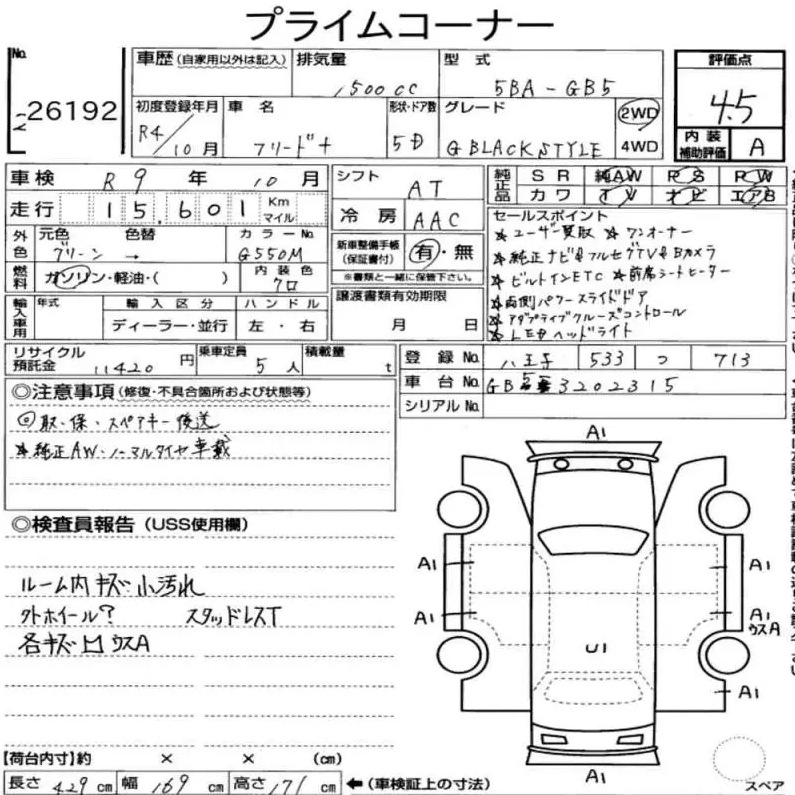 プライムコーナー
No. 26192
車歴 (自家用以外は記入) 排気量 1500cc 型式 5BA-GB5
初度登録年月 R4/10月 車名 フリード+ 形状・ドア数 5D グレード G BLACK STYLE 2WD 4WD
評価点 4.5
内装補助評価 A
車検 R9年10月
走行 15,601 Km マイル
シフト AT
冷房 AAC
純正品 SR 純AW PS PW
カワ TV ナビ エアB
外色 元色 グリーン → 色替 カラーNo. G550M
燃料 ガソリン・軽油・( ) 内装色 クロ
新車整備手帳(保証書付) 有・無
※書類と一緒に保管下さい。
セールスポイント
☆ユーザー買取 ☆ワンオーナー
☆純正ナビ&フルセグTV&Bカメラ
☆ビルトインETC ☆前席シートヒーター
☆両側パワースライドドア
☆アダプティブクルーズコントロール
☆LEDヘッドライト
輸入車用 年式 輸入区分 ディーラー・並行 ハンドル 左・右
譲渡書類有効期限 月 日
リサイクル預託金 11420円 乗車定員 5人 積載量 t
登録No. 八王子 533 つ 713
車台No. GB5 3202315
シリアルNo.
◎注意事項 (修復・不具合箇所および状態等)
◎取・保・スペアキー後送
☆純正AW・ノーマルタイヤ車載
◎検査員報告 (USS使用欄)
ルーム内キズ 小汚れ
外ホイール? スタッドレスT
各キズ凹ウスA
A1
A1 A1
A1 A1
ウスA
U1
A1
A1
スペア
【荷台内寸】約 × × (cm)
長さ 429 cm 幅 169 cm 高さ 171 cm ←(車検証上の寸法)